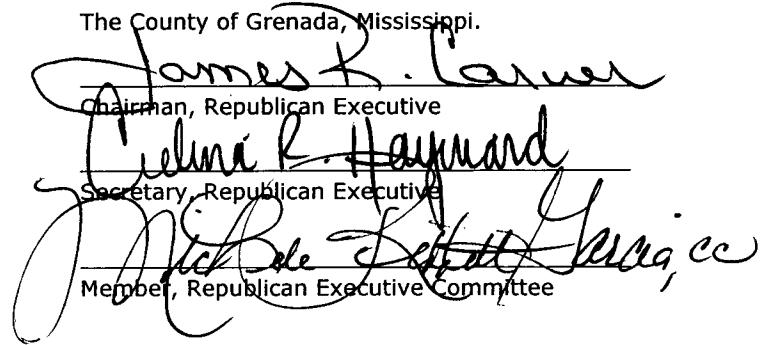 The County of Grenada, Mississippi.
James R. Carver
Chairman, Republican Executive
R. Hayward
Secretary, Republican Executive
Michele Garcia, cc
Member, Republican Executive Committee